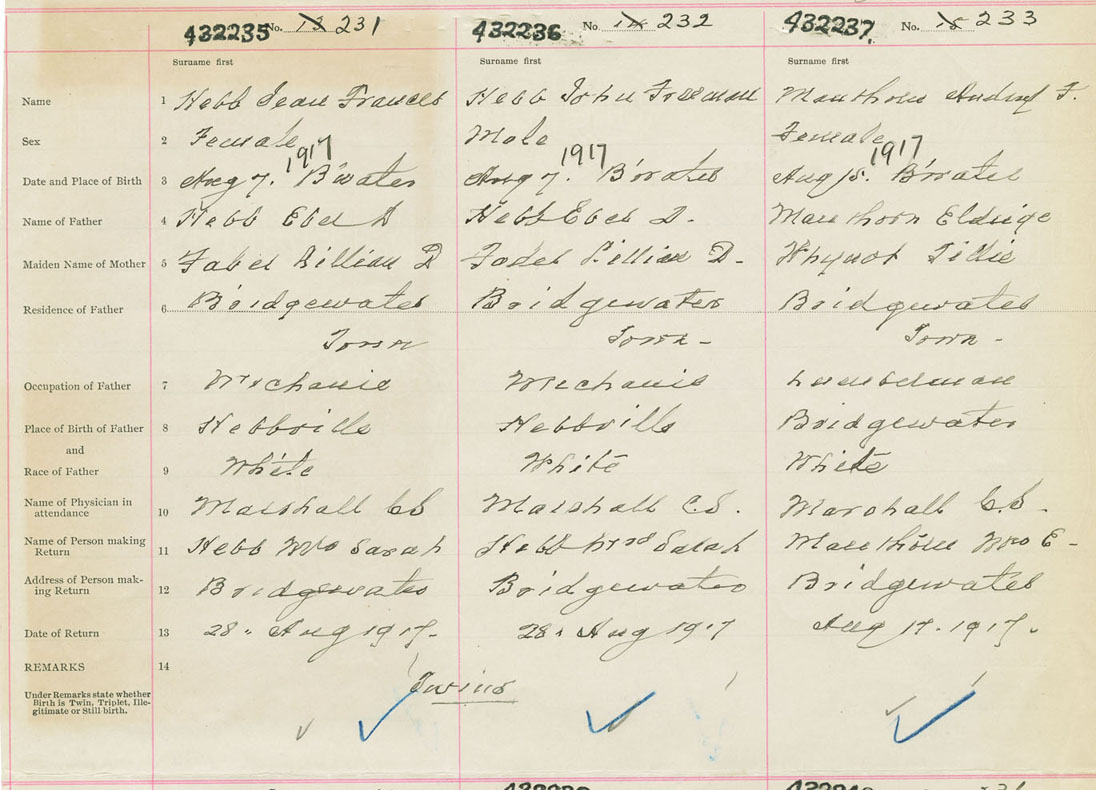 432235 No. 13 231 432236 No. 14 232 432237. No. 15 233
Surname first Surname first Surname first
Name 1 Hebb Jean Frances Hebb John Freeman Manthorn Audrey F.
Sex 2 Female Male Female
1917 1917 1917
Date and Place of Birth 3 Aug 7. B'water Aug 7. B'water Aug 15. B'water
Name of Father 4 Hebb Eber D Hebb Eber D. Manthorn Eldrige
Maiden Name of Mother 5 Lillian D Lillian D. Whynot Tillie
Residence of Father 6 Bridgewater Bridgewater Bridgewater
Town Town - Town -
Occupation of Father 7 Mechanic Mechanic Lumberman
Place of Birth of Father 8 Hebbville Hebbville Bridgewater
and
Race of Father 9 White White White
Name of Physician in
attendance 10 Marshall CS Marshall C.S. Marshall C.S.
Name of Person making
Return 11 Hebb Mrs Sarah Hebb Mrs Sarah Manthorn Mrs E -
Address of Person mak-
ing Return 12 Bridgewater Bridgewater Bridgewater
Date of Return 13 28. Aug 1917. 28. Aug 1917 Aug 17. 1917.
REMARKS 14
Twins
Under Remarks state whether
Birth is Twin, Triplet, Ille-
gitimate or Still birth.